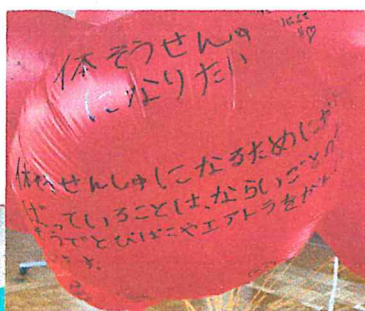 体そうせんしゅ
になりたい
体そうせんしゅになるためにがん
ばっていることは、ならいごとの
とびばこやエアトラを
です。